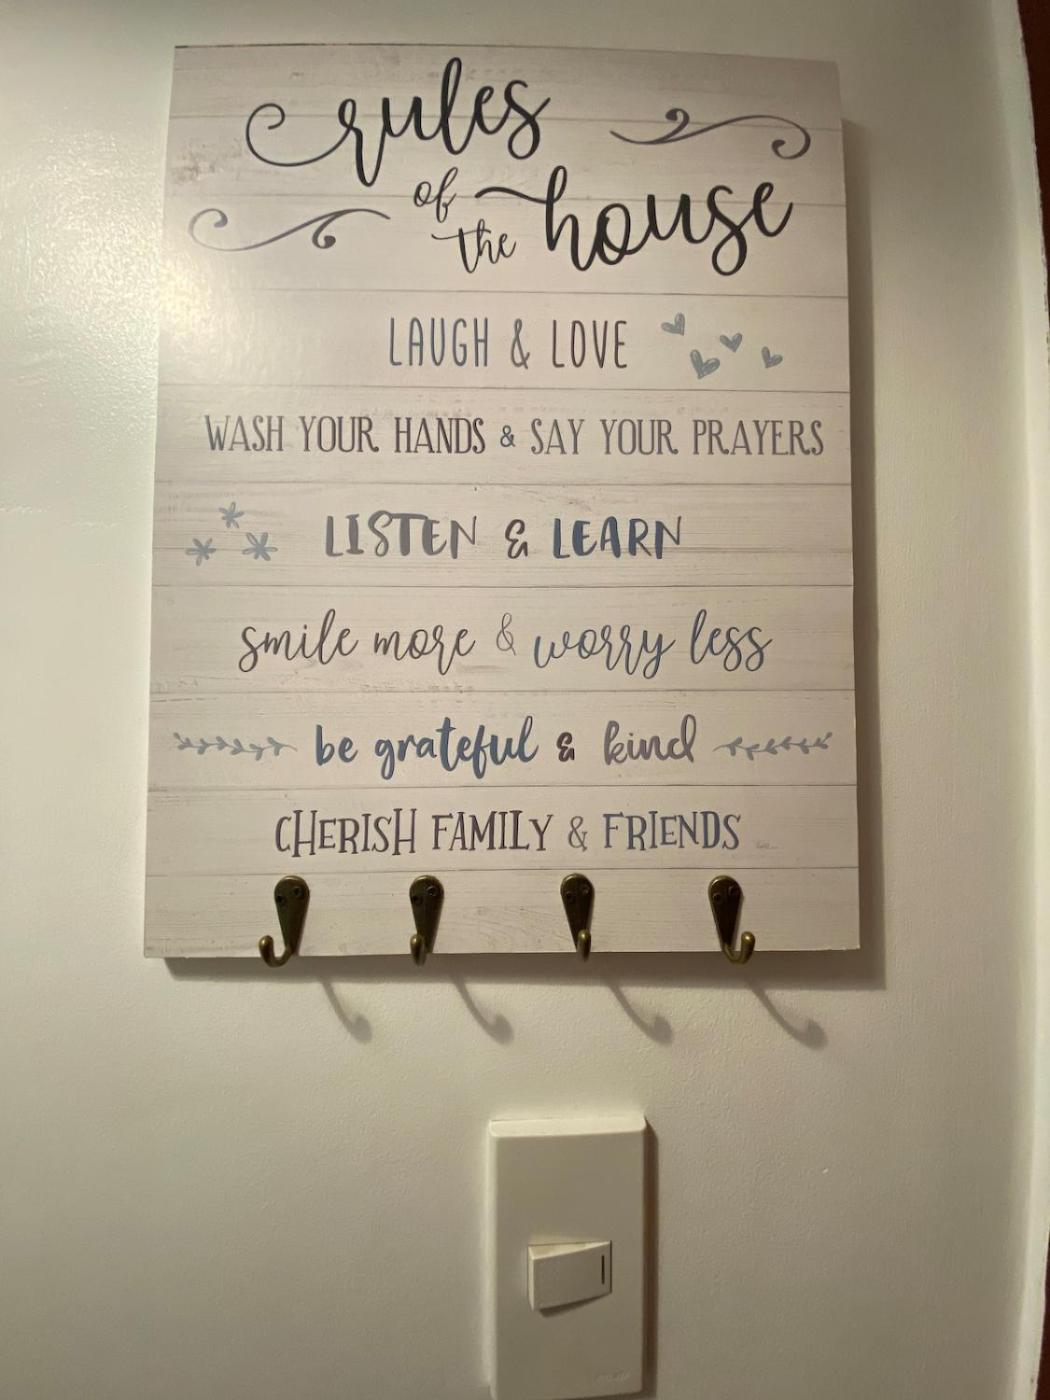 rules
of the house
LAUGH & LOVE
WASH YOUR HANDS & SAY YOUR PRAYERS
LISTEN & LEARN
smile more & worry less
be grateful & kind
CHERISH FAMILY & FRIENDS